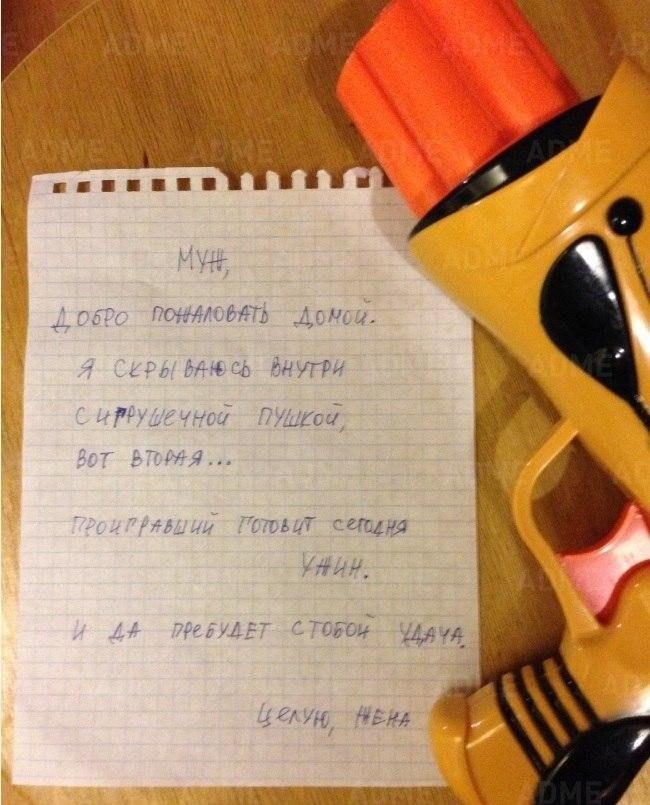 МУЖ,
ДОБРО ПОЖАЛОВАТЬ ДОМОЙ.
Я СКРЫВАЮСЬ ВНУТРИ
С ИГРУШЕЧНОЙ ПУШКОЙ,
ВОТ ВТОРАЯ...
ПРОИГРАВШИЙ ГОТОВИТ СЕГОДНЯ
УЖИН.
И ДА ПРЕБУДЕТ С ТОБОЙ УДАЧА.
ЦЕЛУЮ, ЖЕНА
ADME